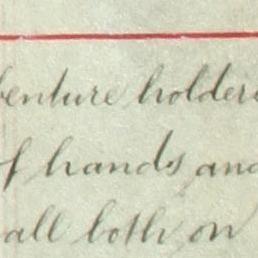 benture holders
of hands and
all both on